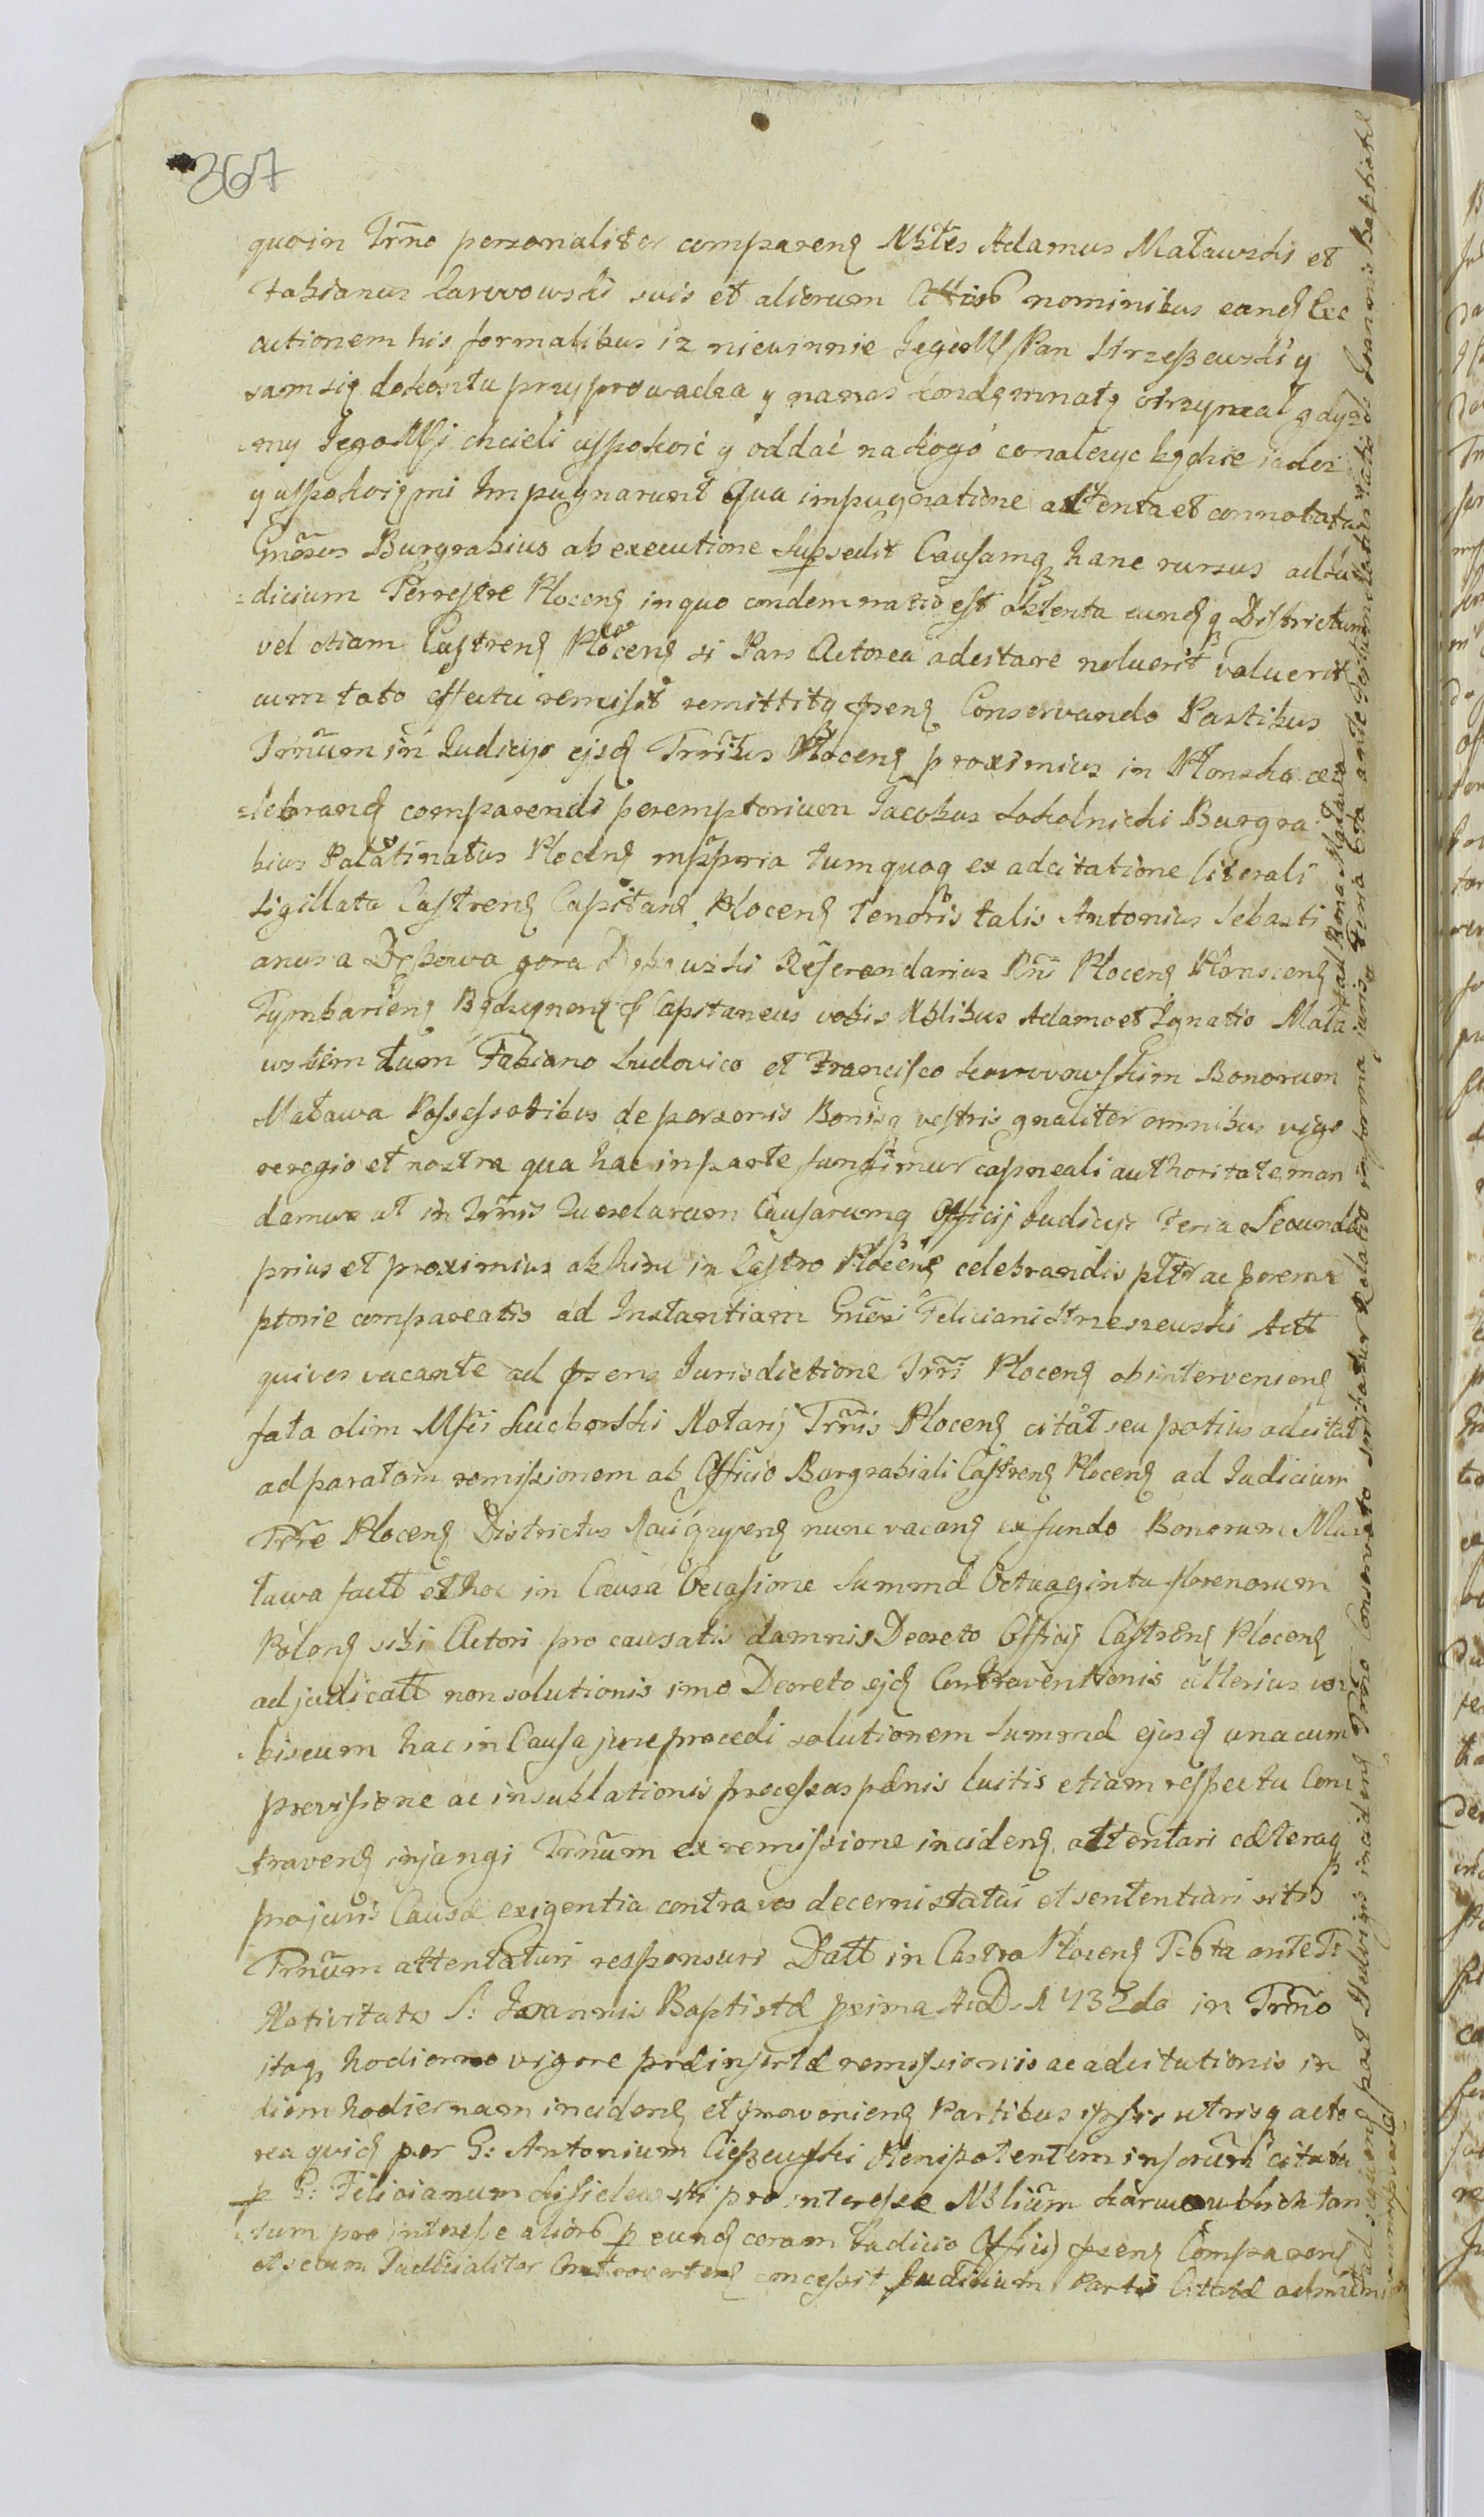 367
quo in Trno personaliter comparenŞ Nbles Adamus Maławski et
Fabianus Karwowski suis et aliorum Cittorb nominibus eandŞ Exe
cutionem his formalibus iz niewinnie Jegoo Mſ Pan Strzeszewski y
sam się dokosztu przyprowadza y nanas kondemnatę otrzymał gdyz
my Jego Mſci chcieli uspokoic y oddać nakogo co należyc będzie iakoz
y uspokoięmi Impugnarunt Qua impugnatione attenta et connotata
Gnosus Burgrabius ab executione supsedit Causamq hanc rursus ad Ju
=dicium Terrestre PlocenŞ in quo condemnatio est obtenta eundŞ q Districtum
vel etiam CastrenŞ PlocenŞ si Pars Actorea adcitare noluerit valuerit
cum toto effectu remisit remittitq psenŞ Conservando Partibus
Trnum in Judicijs ejsdŞ Trribus PlocenŞ proximius in Płonsko ce
=lebrandŞ comparendi peremptorium Jacobus Sokolnicki Burgra
bius Palatinatus PlocenŞ mppria tum quoq ex adcitatione literali
sigillata CastrenŞ CapitanŞ PlocenŞ Tenoris talis Antonius Sebasti
anus a Dębowa gora Dębowski Referendarius Rni PlocenŞ PłonscenŞ
TymbarienŞ BędzynenŞ & Capitaneus vobis Nblibus Adamo et Ignatio Mała
wskim tum Fabiano Ludovico et Francisco Karwowskim Bonorum
Maławа Possessoribus de personis Bonisq vestris gnaliter omnibus vigo
re regio et nostra qua hac in parte fungimur capneali authoritate man
damus ut in Trnis Querelarum Causarumq Officij Judicijs Feria Secunda
prius et proximius ab hinc in Castro PlocenŞ celebrandis pltr ac perem
ptorie compareatis ad Instantiam Gnosi Feliciani Strzeszewski Actt
qui vos vacante ad psens Jurisdictione Trri PlocenŞ ob intervenienŞ
fata olim Mfci Suchorski Notarij Trris PlocenŞ citat seu potius adcitat
ad paratam remissionem ab Officio Burgrabiali CastrenŞ PlocenŞ ad Judicium
Trre PlocenŞ Districtus RaciązynenŞ nunc vacanŞ ex fundo Bonorum Ma
ława factt et hoc in Causa Occasione Summæ Octuaginta florenorum
PolonŞ sibi Actori pro causatis damnis Decreto Officij CastrenŞ PlocenŞ
adjudicatt non solutionis imo Decreto ejdŞ Contraventionis ulterius vo
biscum hac in Causa jure procedi solutionem Summæ ejusdŞ una cum
provisione ac in sublationis processus pænis luitis etiam respectu Con
travenŞ injungi Trnum ex remissione incidenŞ attentari cæteraq
pro juris Causæ exigentia contra vos decerni statui et sententiari sitis
Trnum attentaturi responsuri Datt in Castro PlocenŞ F 6ta ante Ft
Nativitats S: Joannis Baptistæ pxima A:D: 1732do in Trno
itaq hodierno vigore præinsertæ remissionis ac adcitationis in
diem hodiernam incidenŞ et provenienŞ Partibus ipsis utrisq acto
rea quidŞ per G: Antonium Cieszewski Plenipotentem in forum citata
p G: Felicianum Kisielewski pro interesse Nblium Karwowskich tan
tum pro interesse aliorb p eundŞ coram Judicio Officij psenŞ ComparenŞ
et secum Judicialiter ControvertenŞ concessit Judicium Parti Cittatæ ad muni